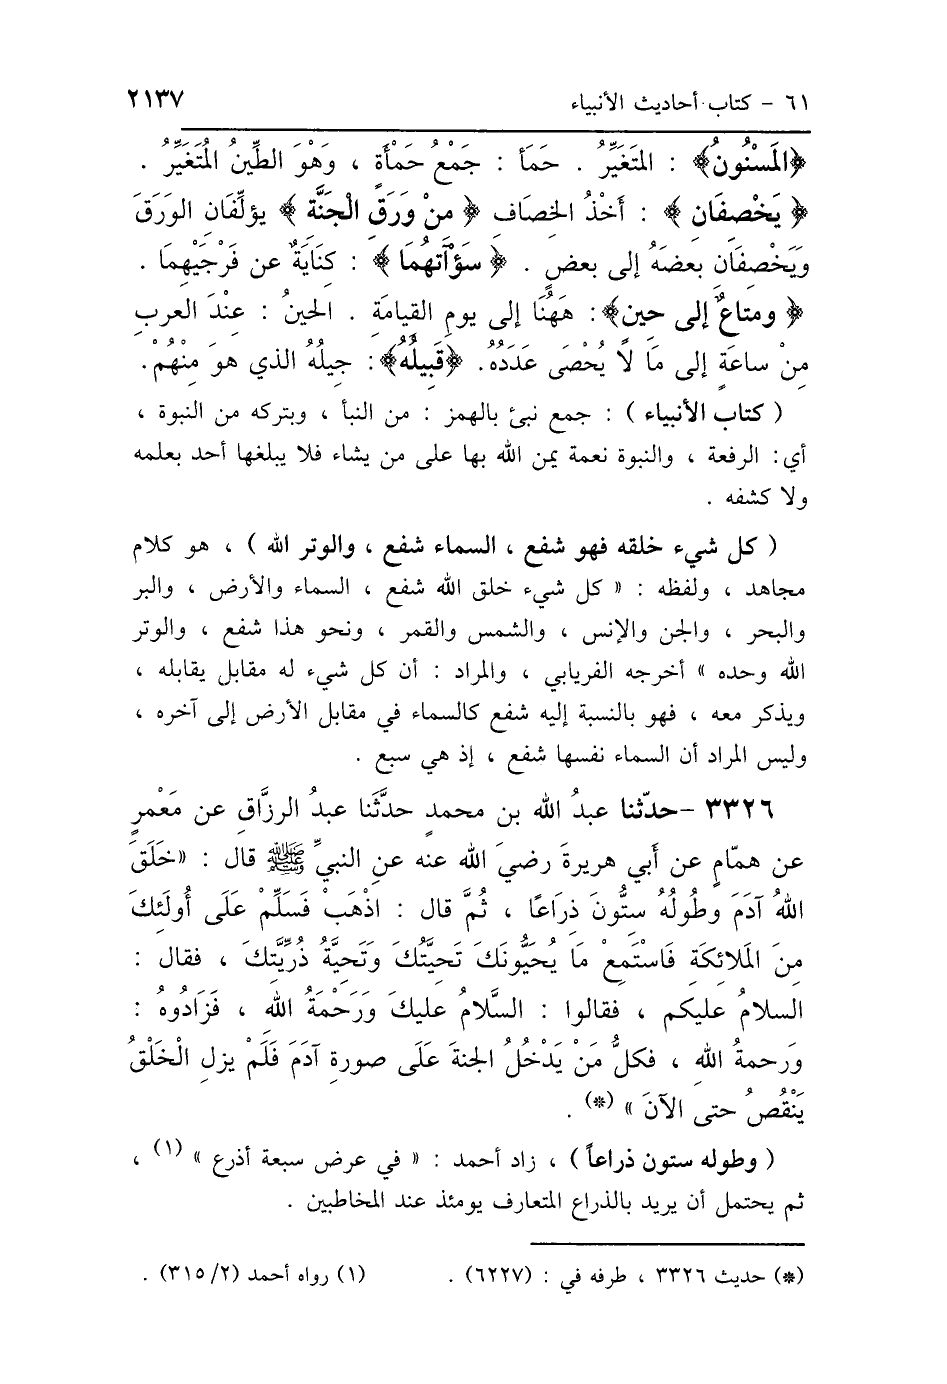 ٦١ - كتاب أحاديث الأنبياء ٢١٣٧
﴿المَسْنُونُ﴾ : المتَغَيِّرُ . حَمَأ : جَمْعُ حَمْأَةٍ ، وَهْوَ الطِّينُ المُتَغَيِّرُ .
﴿ يَخْصِفَان ﴾ : أَخْذُ الخِصَاف ﴿ مِنْ وَرَقِ الْجَنَّة ﴾ يؤلِّفَان الوَرَقَ
وَيَخْصِفَانِ بعضَهُ إلى بعضٍ . ﴿ سَوْآتهُمَا ﴾ : كنَايَةٌ عن فَرْجَيْهِمَا .
﴿ ومتاعٌ إلى حين﴾: هَهُنَا إلى يومِ القيامَةِ . الحينُ : عِنْدَ العربِ
مِنْ ساعَةٍ إلى مَا لاَ يُحْصَى عَدَدُهُ. ﴿قَبِيلُهُ﴾: جيلُهُ الذي هوَ مِنْهُمْ.
( كتاب الأنبياء ) : جمع نبئ بالهمز : من النبأ ، وبتركه من النبوة ،
أي: الرفعة ، والنبوة نعمة يمن الله بها على من يشاء فلا يبلغها أحد بعلمه
ولا كشفه .
( كل شيء خلقه فهو شفع ، السماء شفع ، والوتر الله ) ، هو كلام
مجاهد ، ولفظه : « كل شيء خلق الله شفع ، السماء والأرض ، والبر
والبحر ، والجن والإنس ، والشمس والقمر ، ونحو هذا شفع ، والوتر
الله وحده » أخرجه الفريابي ، والمراد : أن كل شيء له مقابل يقابله ،
ويذكر معه ، فهو بالنسبة إليه شفع كالسماء في مقابل الأرض إلى آخره ،
وليس المراد أن السماء نفسها شفع ، إذ هي سبع .
٣٣٢٦ -حدّثنا عبدُ الله بن محمدٍ حدَّثَنا عبدُ الرزَّاقِ عن مَعْمَرٍ
عن همّامٍ عن أبي هريرةَ رضيَ الله عنه عنِ النبيِّ ﷺ قال : «خَلَقَ
اللهُ آدَمَ وطُولُهُ ستُّونَ ذِرَاعًا ، ثُمَّ قال : اذْهَبْ فَسَلِّمْ عَلَى أُولَئِكَ
مِنَ المَلائكَةِ فَاسْتَمِعْ مَا يُحَيُّونَكَ تَحيَّتُكَ وَتَحيَّةُ ذُرِّيَّتِكَ ، فقال :
السلامُ عليكم ، فقالوا : السَّلامُ عليكَ وَرَحْمَةُ الله ، فَزَادُوهُ :
وَرَحمةُ الله ، فكلُّ مَنْ يَدْخُلُ الجنةَ عَلَى صورةِ آدَمَ فَلَمْ يزلِ الْخَلْقُ
يَنْقُصُ حتى الآنَ » (*) .
( وطوله ستون ذراعاً ) ، زاد أحمد : « في عرض سبعة أذرع » (١) ،
ثم يحتمل أن يريد بالذراع المتعارف يومئذ عند المخاطبين .
(*) حديث ٣٣٢٦ ، طرفه في : (٦٢٢٧) . (١) رواه أحمد (٢/ ٣١٥) .